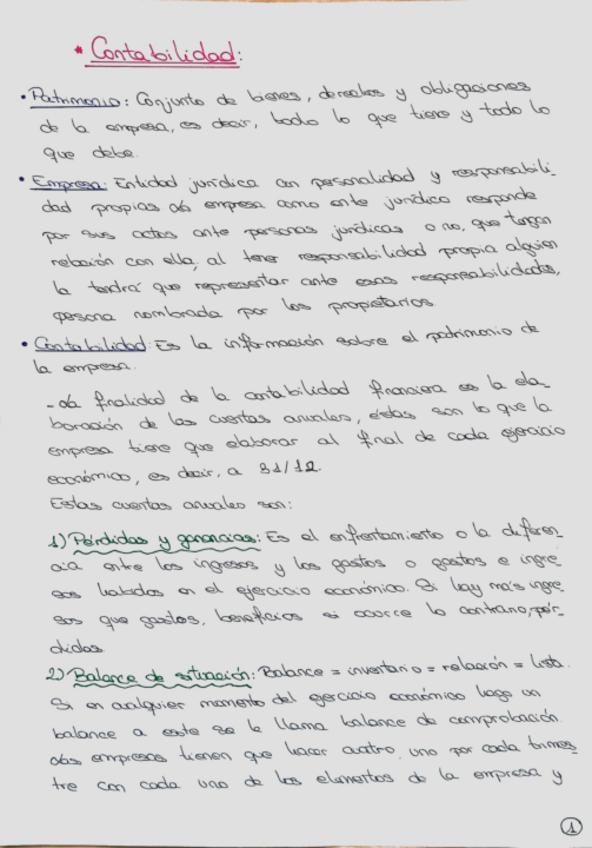 * Contabilidad:
• Patrimonio: Conjunto de bienes, derechos y obligaciones
de la empresa, es decir, todo lo que tiene y todo lo
que debe.
• Empresa: Entidad jurídica con personalidad y responsabili-
dad propias. La empresa como ente jurídico responde
por sus actos ante personas jurídicas o no, que tengan
relación con ella, al tener responsabilidad propia alguien
la tendrá que representar ante esas responsabilidades,
persona nombrada por los propietarios.
• Contabilidad: Es la información sobre el patrimonio de
la empresa.
- La finalidad de la contabilidad financiera es la ela_
boración de las cuentas anuales, éstas son lo que la
empresa tiene que elaborar al final de cada ejercicio
económico, es decir, a 31/12.
Estas cuentas anuales son:
1) Pérdidas y ganancias: Es el enfrentamiento o la diferen_
cia entre los ingresos y los gastos o gastos e ingre_
sos habidos en el ejercicio económico. Si hay más ingre_
sos que gastos, beneficios si ocurre lo contrario, pér_
didas.
2) Balance de situación: Balance = inventario = relación = lista.
Si en cualquier momento del ejercicio económico hago un
balance a este se le llama balance de comprobación.
Las empresas tienen que hacer cuatro, uno por cada trimes_
tre con cada uno de los elementos de la empresa y
1